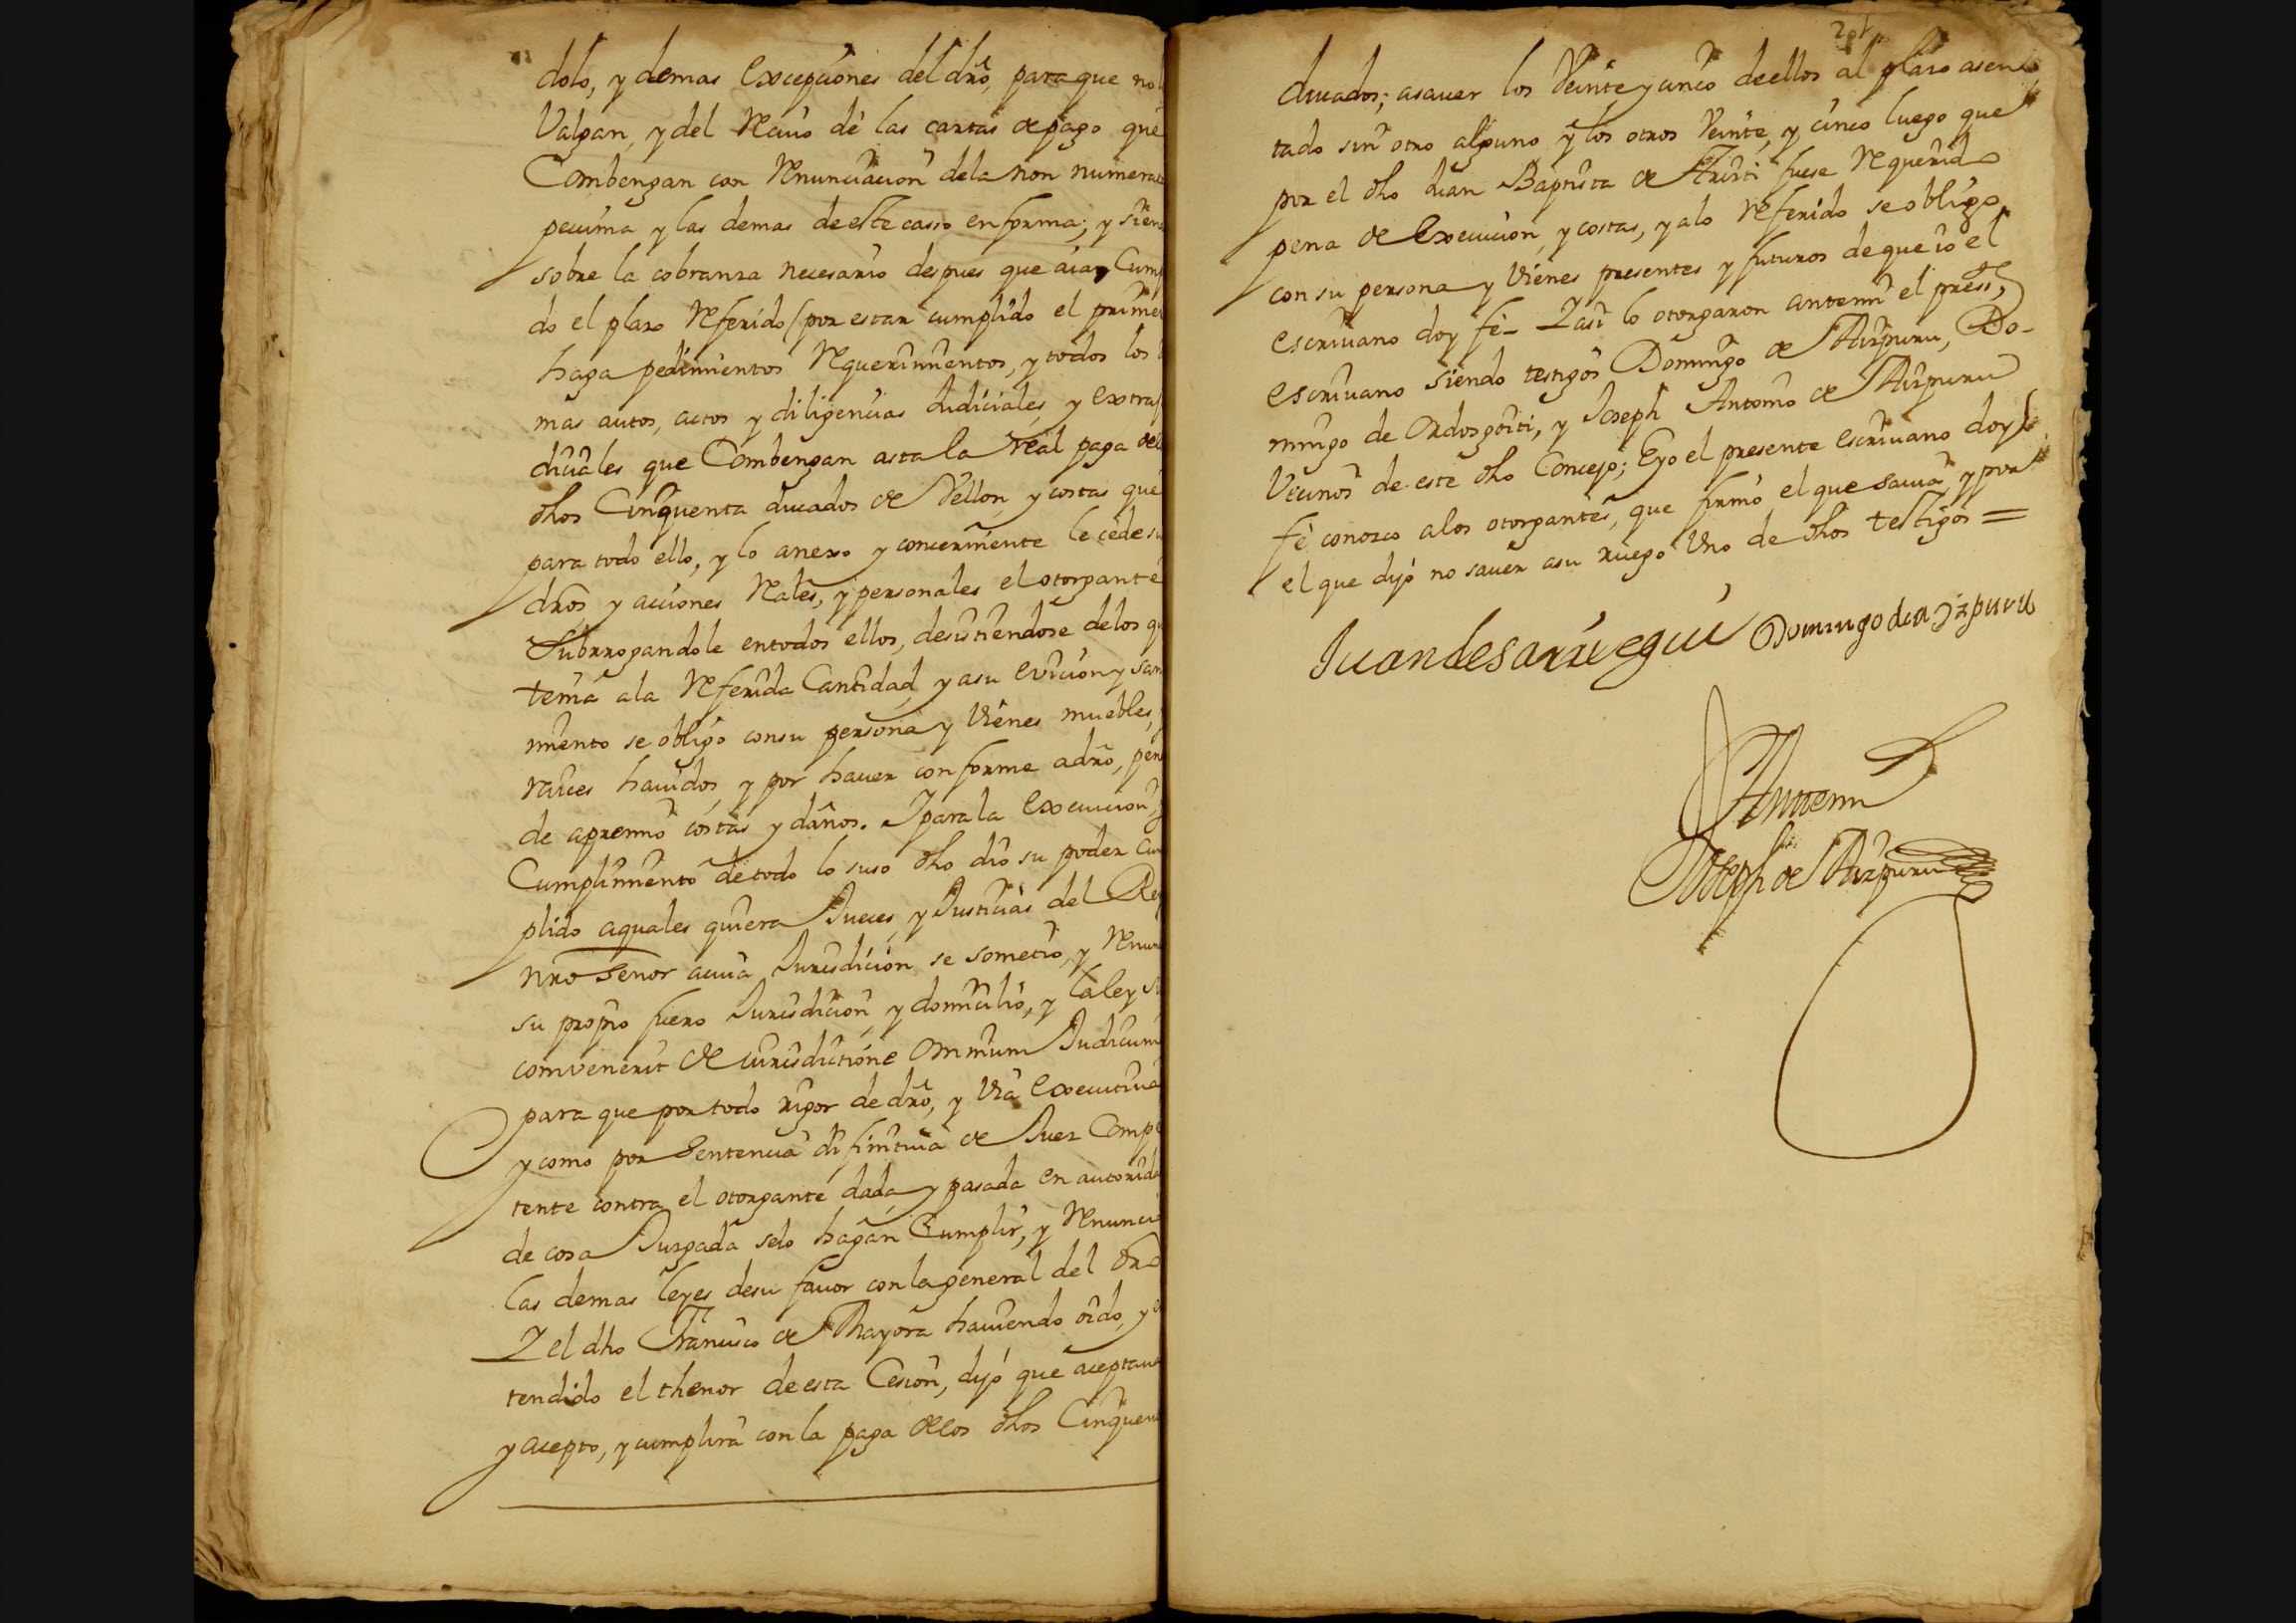 dolo, y demas excepciones del dr̃o, para que no l
Valgan, y del Reciuo de las cartas de pago que
Combengan con Renunciacion dela non numerat
pecunia y las demas de este casso en forma; y sien
sobre la cobranza necesario despues que aia Cump
do el plazo Referido (por estar cumplido el primer
haga pedimientos Requerimientos, y todos los
mas autos, actos y diligencias Judiciales, y extraj
diciales que Combengan asta la Real paga de
dhos Cinquenta ducados de Vellon, y costas que
para todo ello, y lo anexo y concerniente le cede su
dr̃os y acciones Rales, y personales el otorgante
Subrrogandole en todos ellos, desistiendose delos q
tenia ala Referida Cantidad, y asu eviccion y san
miento se obligo consu persona y Vienes muebles,
raices hauidos, y por hauer conforme adr̃o, pen
de apremio costas y daños. Y para la execucion, y
Cumplimiento de todo lo suso dho dio su poder Cum
plido aquales quiera Jueces, y Justicias del Rey
nr̃o Señor acuia Jurisdicion se sometio, y Renun
su propio fuero Jurisdicion, y domicilio, y la ley si
convenerit de iurisdictione omnium Judicum
para que por todo rigor de dr̃o, y Via executiua
y como por Sentencia difinitiua de Juez Compe
tente contra el otorgante dada, y pasada en autorida
de cosa Juzgada selo hagan Cumplir, y Renuncio
las demas leyes desu fauor con la general del dr̃o
Y el dho Francisco de Mayora hauiendo oido, y en
tendido el thenor de esta Cesion, dijo que aceptaua
y acepto, y cumplira con la paga delos dhos Cinquen
ducados; asauer los Veinte y cinco de ellos al plazo asen
tado sin otro alguno y los otros Veinte, y cinco luego que
por el dho Juan Baptista de fuese Requerido
pena de execucion, y costas, y alo Referido se obligo
con su persona y Vienes presentes y futuros de que io el
escriuano doy fe - Y asi lo otorgaron antemi el press.te
escriuano siendo testigos Domingo de Aizpuru, Do-
mingo de Ordozgoiti, y Joseph Antonio de Aizpuru
Vecinos de este dho Concejo; E yo el presente escriuano doy
fe conozco alos otorgantes, que firmo el que sauia, y por
el que dijo no sauer asu ruego Uno de dhos testigos =
Juan de Sarruegui Domingo de aizpuru
Antemi
Joseph de Aizpuru